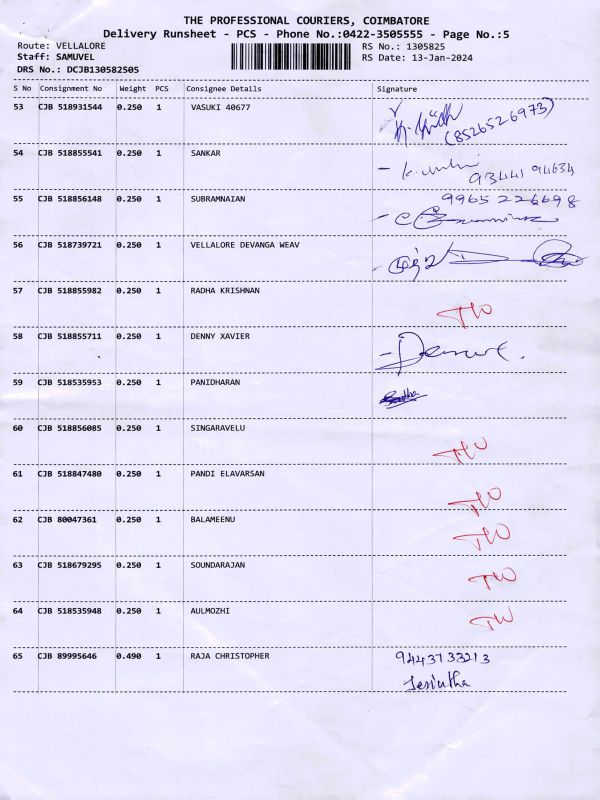 THE PROFESSIONAL COURIERS, COIMBATORE
Delivery Runsheet - PCS - Phone No.:0422-3505555 - Page No.:5
Route: VELLALORE RS No.: 1305825
Staff: SAMUVEL RS Date: 13-Jan-2024
DRS No.: DCJB130582505
S No Consignment No Weight PCS Consignee Details Signature
53 CJB 518931544 0.250 1 VASUKI 40677
(8526526973)
54 CJB 518855541 0.250 1 SANKAR
9344194634
55 CJB 518856148 0.250 1 SUBRAMNAIAN 9965226698
56 CJB 518739721 0.250 1 VELLALORE DEVANGA WEAV
57 CJB 518855982 0.250 1 RADHA KRISHNAN
58 CJB 518855711 0.250 1 DENNY XAVIER
59 CJB 518535953 0.250 1 PANIDHARAN
60 CJB 518856085 0.250 1 SINGARAVELU
61 CJB 518847480 0.250 1 PANDI ELAVARSAN
62 CJB 80047361 0.250 1 BALAMEENU
63 CJB 518679295 0.250 1 SOUNDARAJAN
64 CJB 518535948 0.250 1 AULMOZHI
65 CJB 89995646 0.490 1 RAJA CHRISTOPHER 9443733213
Jesintha